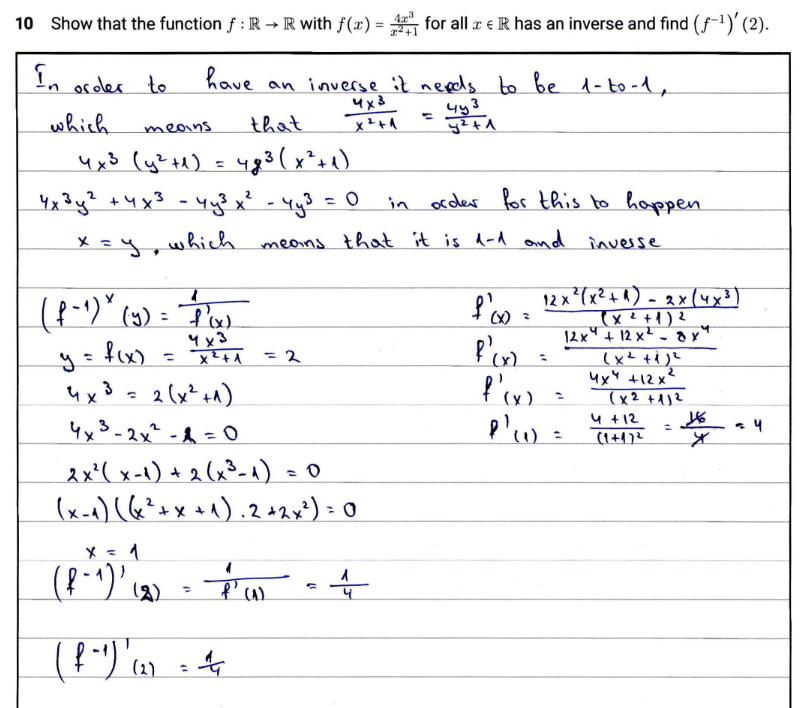 10 Show that the function f : ℝ → ℝ with f(x) = 4x³/(x²+1) for all x ϵ ℝ has an inverse and find (f⁻¹)′(2).
In order to have an inverse it needs to be 1-to-1,
which means that 4x³/(x²+1) = 4y³/(y²+1)
4x³ (y²+1) = 4y³(x²+1)
4x³y² + 4x³ - 4y³x² - 4y³ = 0 in order for this to happen
x = y, which means that it is 1-1 and inverse
(f-1)ˣ (y) = 1/f'(x)
y = f(x) = 4x³/(x²+1) = 2
4x³ = 2(x²+1)
4x³ - 2x² - 2 = 0
2x²(x-1) + 2(x³-1) = 0
(x-1)((x²+x+1).2+2x²) = 0
x = 1
(f-1)' (2) = 1/f'(1) = 1/4
(f-1)' (2) = 1/4
f'(x) = (12x²(x²+1) - 2x(4x³))/(x²+1)2
f'(x) = (12x⁴ + 12x² - 8x⁴)/(x²+1)²
f'(x) = (4x⁴ + 12x²)/(x2+1)2
f'(1) = (4+12)/(1+1)² = 16/4 = 4